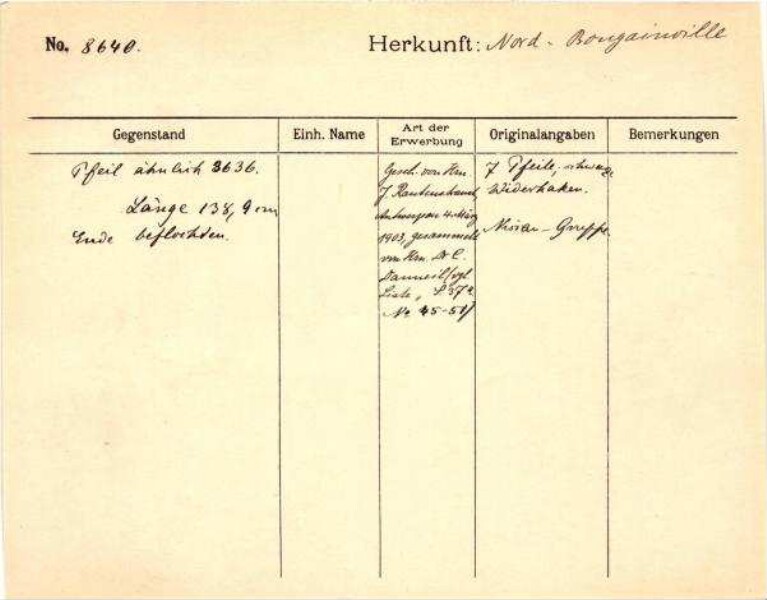 No. 8640. Herkunft: Nord - Bougainville
Gegenstand Einh. Name Art der Erwerbung Originalangaben Bemerkungen
Pfeil ähnlich 3636.
Länge 138,9 cm
Ende beflochten.
Gesch. von Hrn.
J. Rautenstrauch,
Antwerpen 4. März
1903, gesammelt
von Hrn. Dr C.
Danneil (vgl.
Liste, S 37a
No 45-51)
7 Pfeile, schwarze
Widerhaken.
Nissan - Gruppe.